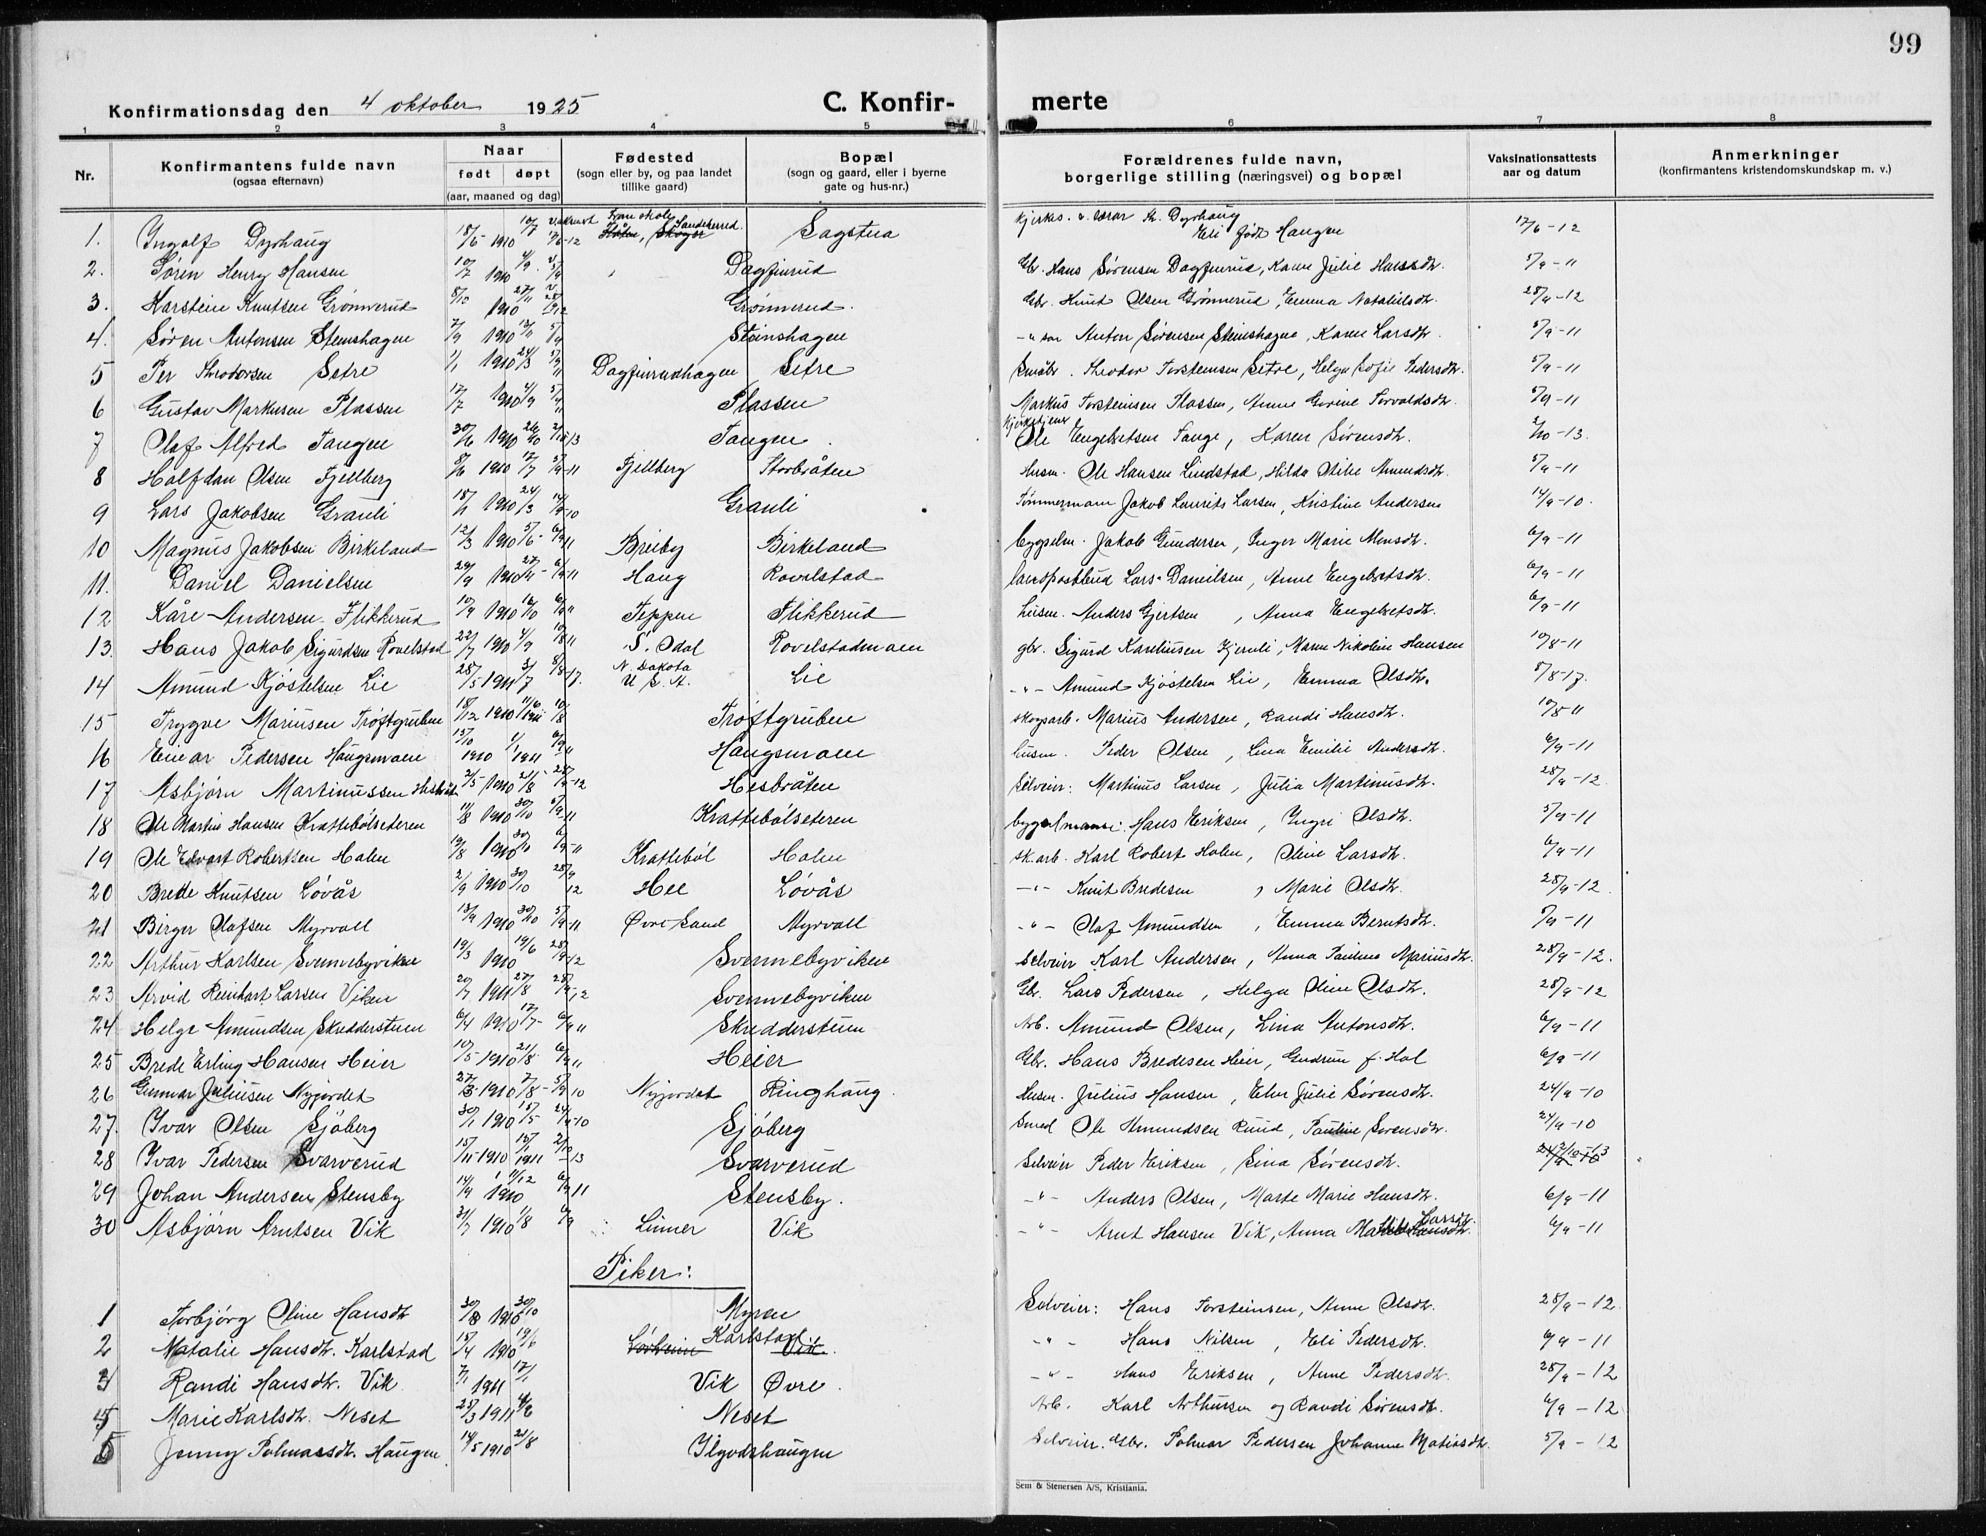 99
Konfirmationsdag den 4 oktober 1925 C. Konfir- merte
1 2 3 4 5 6 7 8
Nr. Konfirmantens fulde navn (ogsaa efternavn) Naar født døpt (aar, maaned og dag) Fødested (sogn eller by, og paa landet tillike gaard) Bopæl (sogn og gaard, eller i byerne gate og hus-nr.) Forældrenes fulde navn, borgerlige stilling (næringsvei) og bopæl Vaksinationsattests aar og datum Anmerkninger (konfirmantens kristendomskundskap m. v.)
1. Ingolf Dyrhaug 18/5 1910 10/7 Sandeherred Sagstua Dyrhaug Eli født Haugen 17/6-12
2. Søren Henry Hansen 10/7 1910 4/9 Dagfinrud Gbr. Hans Sørensen Dagfinrud, Karen Julie Hansdtr. 5/9-11
3. Karstein Knutsen Grønnerud 8/10 1910 27/11 Grønnerud Gbr. Knut Olsen Grønnerud, Emma Natalielsdtr. 28/9-12
4. Søren Antonsen Steinshagen 7/9 1910 Steinshagen Anton Sørensen Steinshagen, Karen Larsdtr. 5/9-11
5 Per Theodorsen Setre 1/1 1910 24/3 Dagfinrudhagen Setre Småbr. Theodor Torsteinsen Setre, Helga Sofie Pedersdtr. 5/9-11
6 Gustav Markusen Plassen 17/7 1910 4/9 Plassen Markus Torsteinsen Plassen, Anne Torvaldsdtr. 5/9-11
7 Olaf Alfred Tangen 30/6 1910 Tangen Kirketjener Ole Engebretsen Tange, Karen Sørensdtr. 2/10-13
8 Halfdan Olsen Fjellberg 8/6 1910 17/7 5/9-11 Fjellberg Storbråten Husm. Ole Hansen Lindstad, Hilda Otilie Amundsdtr. 5/9-11
9 Lars Jakobsen Granli 18/1 1910 24/3 14/9-10 Granli Tømmermann Jakob Laurits Larsen, Kristine Andersen 14/9-10
10 Magnus Jakobsen Birkeland 12/3 1910 5/6 6/9-11 Breiby Birkeland bygselm. Jakob Gundersen, Inger Marie Monsdtr. 6/9-11
11. Daniel Danielsen 1910 6/9-11 Haug Rovelstad landpostbud Lars Danielsen, Anne Engebretsdtr. 6/9-11
12 Kåre Andersen Flikkerud 10/9 1910 16/10 Teppen Flikkerud husm. Anders Gjertsen, Anna Engebretsdtr. 6/9-11
13. Hans Jakob Sigurdsen Rovelstad 22/7 1910 4/9 S. Odal Rovelstadmoen gbr. Sigurd Karelinsen Kjernli, Maren Nikoline Hansen 10/8-11
14 Amund Kjøstelsen Lie 28/5 1911 3/7 8/8-17. N. Dakota U. S. A. Lie -"- Amund Kjøstelsen Lie, Emma Olsdtr. 8/8-17.
15 Trygve Mariusen Trøftgruben 18/12 1910 Trøftgruben skogsarb. Marius Andersen, Randi Hansdtr. 10/8 11
16 Einar Pedersen Haugsmoen 13/10 1910 1/1 1911 Haugsmoen husm. Peder Olsen, Lina Emilie Andersdtr. 6/9-11
17 Asbjørn Martinussen Hesbråten 2/5 1910 21/8 28/9-12 Hesbråten Selveier: Martinus Larsen, Julia Martinusdtr. 28/9-12.
18 Ole Martin Hansen Krattebølseteren 11/8 1910 30/10 5/9-11 Krattebølseteren bygselmann: Hans Eriksen, Ingri Olsdtr. 5/9-11
19 Ole Edvart Robertsen Holen 19/8 1910 30/10 Krattebøl Holen sk.arb. Karl Robert Holen, Oline Larsdtr. 6/9-11
20 Brede Knutsen Løvås 2/9 1910 30/10 28/9 12 Hee Løvås -"- Knut Bredesen, Marie Olsdtr. 28/9-12
21 Birger Olafsen Myrvoll 13/9 1910 30/10 5/9-11 Øvre Sand Myrvoll -"- Olaf Amundsen, Emma Berntsdtr. 5/9-11
22 Arthur Karlsen Svennebyviken 19/3 1910 19/6 28/9-12 Svennebyviken Selveier Karl Andersen, Anna Pauline Mariusdtr. 28/9-12.
23 Arvid Reinhart Larsen Viken 20/7 1911 27/8 28/9-12 Svennebyviken Gbr. Lars Pedersen, Helga Oline Olsdtr. 28/9-12
24 Helge Amundsen Skredderstuen 6/4 1910 17/7 6/9 11 Skredderstuen Arb. Amund Olsen, Lina Antonsdtr. 6/9-11
25 Brede Erling Hansen Heier 10/5 1910 21/8 6/9 11 Heier Gbr. Hans Bredesen Heier, Gudrun f. Hol 6/9-11
26 Gunnar Juliusen Nyjordet 1910 7/8 Nyjordet Ringhaug Husm. Julius Hansen, Elen Julie Sørensdtr. 24/9-10
27. Ivar Olsen Sjøberg 30/1 1910 15/5 24/9-10 Sjøberg Smed Ole Amundsen Ruud, Pauline Sørensdtr. 24/9-10
28 Ivar Pedersen Svarverud 15/11 1910 15/1 1911 2/10-13 Svarverud Selveier Peder Eriksen, Lina Sørensdtr.
29 Johan Andersen Stensby 14/9 1910 11/12 6/9 11 Stensby. -"- Anders Olsen, Marte Marie Hansdtr. 6/9-11
30 Asbjørn Arntsen Vik 31/7 1910 6/9 Linner Vik -"- Arnt Hansen Vik, Anna Larsdtr. 6/9-11
Piker:
1 Torbjørg Oline Hansdtr 30/8 1910 30/10 Myren Selveier: Hans Torsteinsen, Anne Olsdtr. 28/9-12.
2 Natalie Hansdtr. Karlstad 15/4 1910 19/6 Karlstad Vik. -"- Hans Nilsen, Eli Pedersdtr. 6/9-11
3 Randi Hansdtr. Vik 7/1 1911 Vik Øvre. -"- Hans Eriksen, Anne Pedersdtr. 28/9-12
4 Marie Karlsdtr. Neset 25/3 1911 4/6 Neset Arb. Karl Arthursen og Randi Sørensdtr. 6/9-12
5 Jenny Polmarsdtr. Haugen 14/5 1910 21/8 Selveier. Gbr. Polmar Pedersen Johanne Matiasdtr. 5/9-12
Sem & Stenersen A/S, Kristiania.